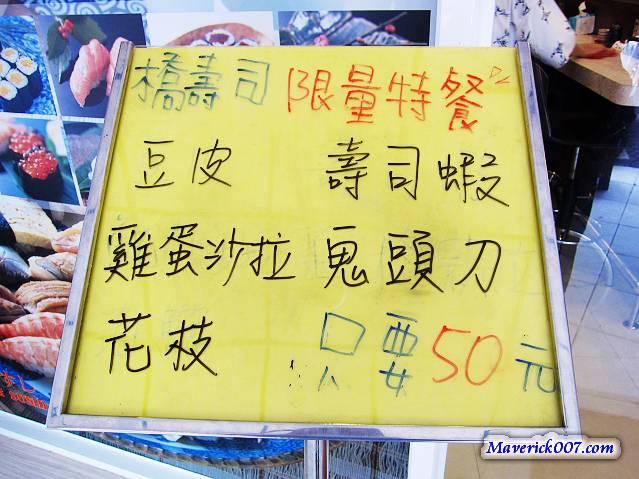 橋壽司 限量特餐
豆皮 壽司蝦
雞蛋沙拉 鬼頭刀
花枝 只要50元
Maverick007.com